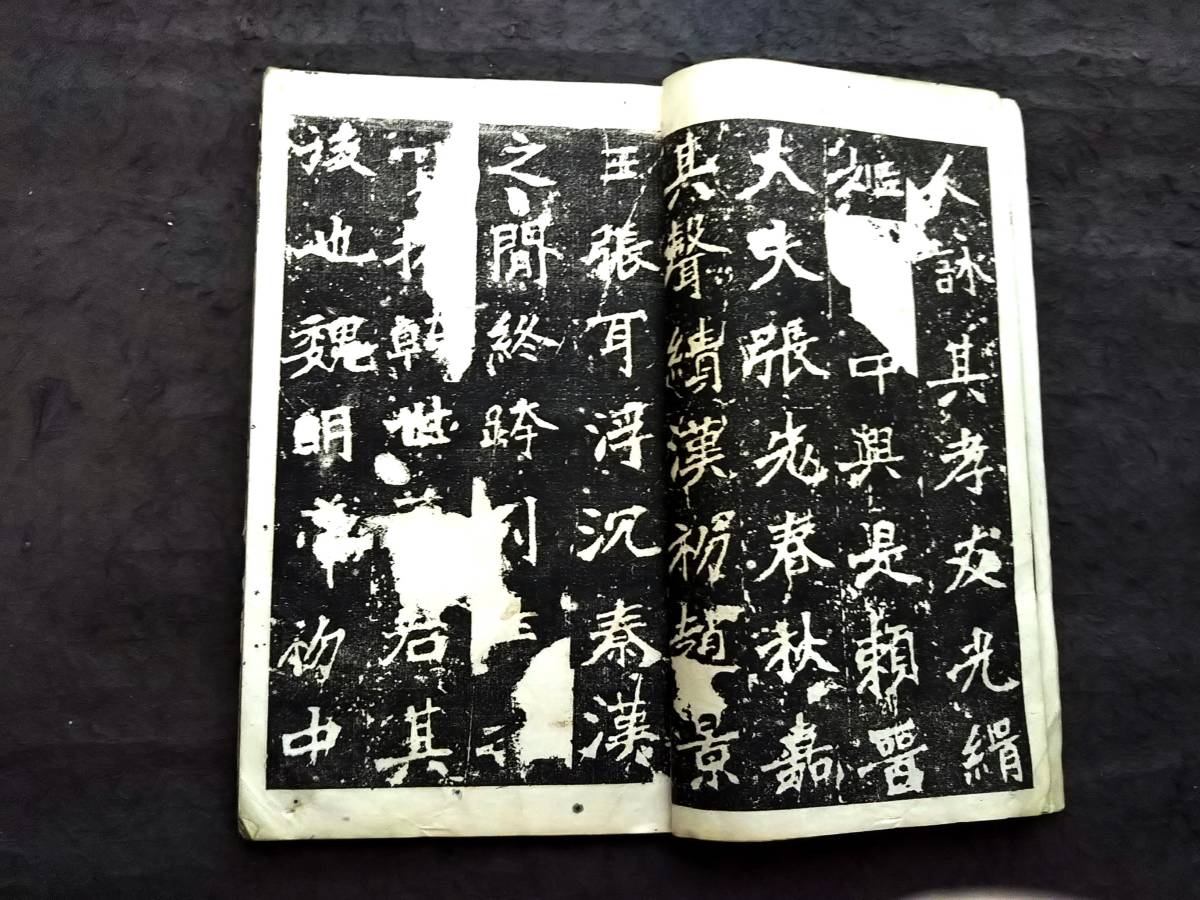 人詠其孝友光緝
姬中興是賴晉
大夫張老春秋嘉
其聲績漢初趙景
王張耳浮沉秦漢
之閒終跨列土之
世君其
後也魏明帝初中